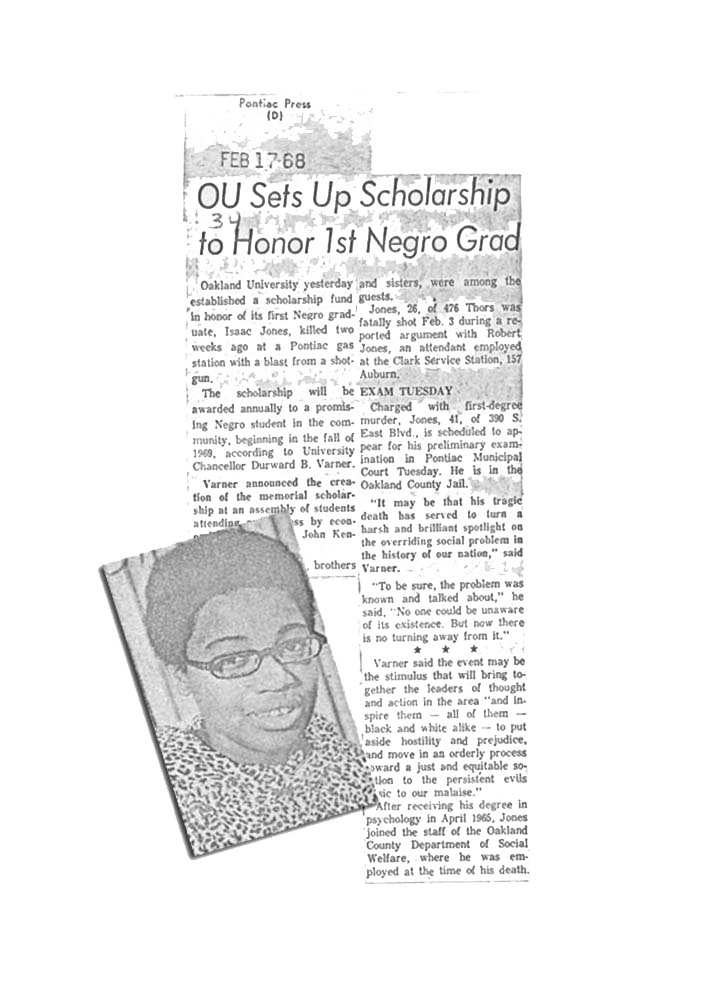 Pontiac Press
(D)
FEB 17-68
OU Sets Up Scholarship
34
to Honor 1st Negro Grad
Oakland University yesterday
established a scholarship fund
in honor of its first Negro grad-
uate, Isaac Jones, killed two
weeks ago at a Pontiac gas
station with a blast from a shot-
gun.
The scholarship will be
awarded annually to a promis-
ing Negro student in the com-
munity, beginning in the fall of
1969, according to University
Chancellor Durward B. Varner.
Varner announced the crea-
tion of the memorial scholar-
ship at an assembly of students
attending
ss by econ-
John Ken-
, brothers
and sisters, were among the
guests.
Jones, 26, of 476 Thors was
fatally shot Feb. 3 during a re-
ported argument with Robert
Jones, an attendant employed
at the Clark Service Station, 157
Auburn.
EXAM TUESDAY
Charged with first-degree
murder, Jones, 41, of 390 S.
East Blvd., is scheduled to ap-
pear for his preliminary exam-
ination in Pontiac Municipal
Court Tuesday. He is in the
Oakland County Jail.
"It may be that his tragic
death has served to turn a
harsh and brilliant spotlight on
the overriding social problem in
the history of our nation," said
Varner.
"To be sure, the problem was
known and talked about," he
said, "No one could be unaware
of its existence. But now there
is no turning away from it."
★ ★ ★
Varner said the event may be
the stimulus that will bring to-
gether the leaders of thought
and action in the area "and in-
spire them — all of them —
black and white alike — to put
aside hostility and prejudice,
and move in an orderly process
toward a just and equitable so-
tion to the persistent evils
sic to our malaise."
After receiving his degree in
psychology in April 1965, Jones
joined the staff of the Oakland
County Department of Social
Welfare, where he was em-
ployed at the time of his death.